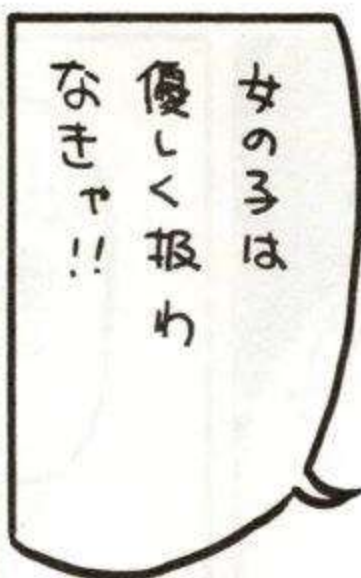 女の子は
優しく扱わ
なきゃ!!